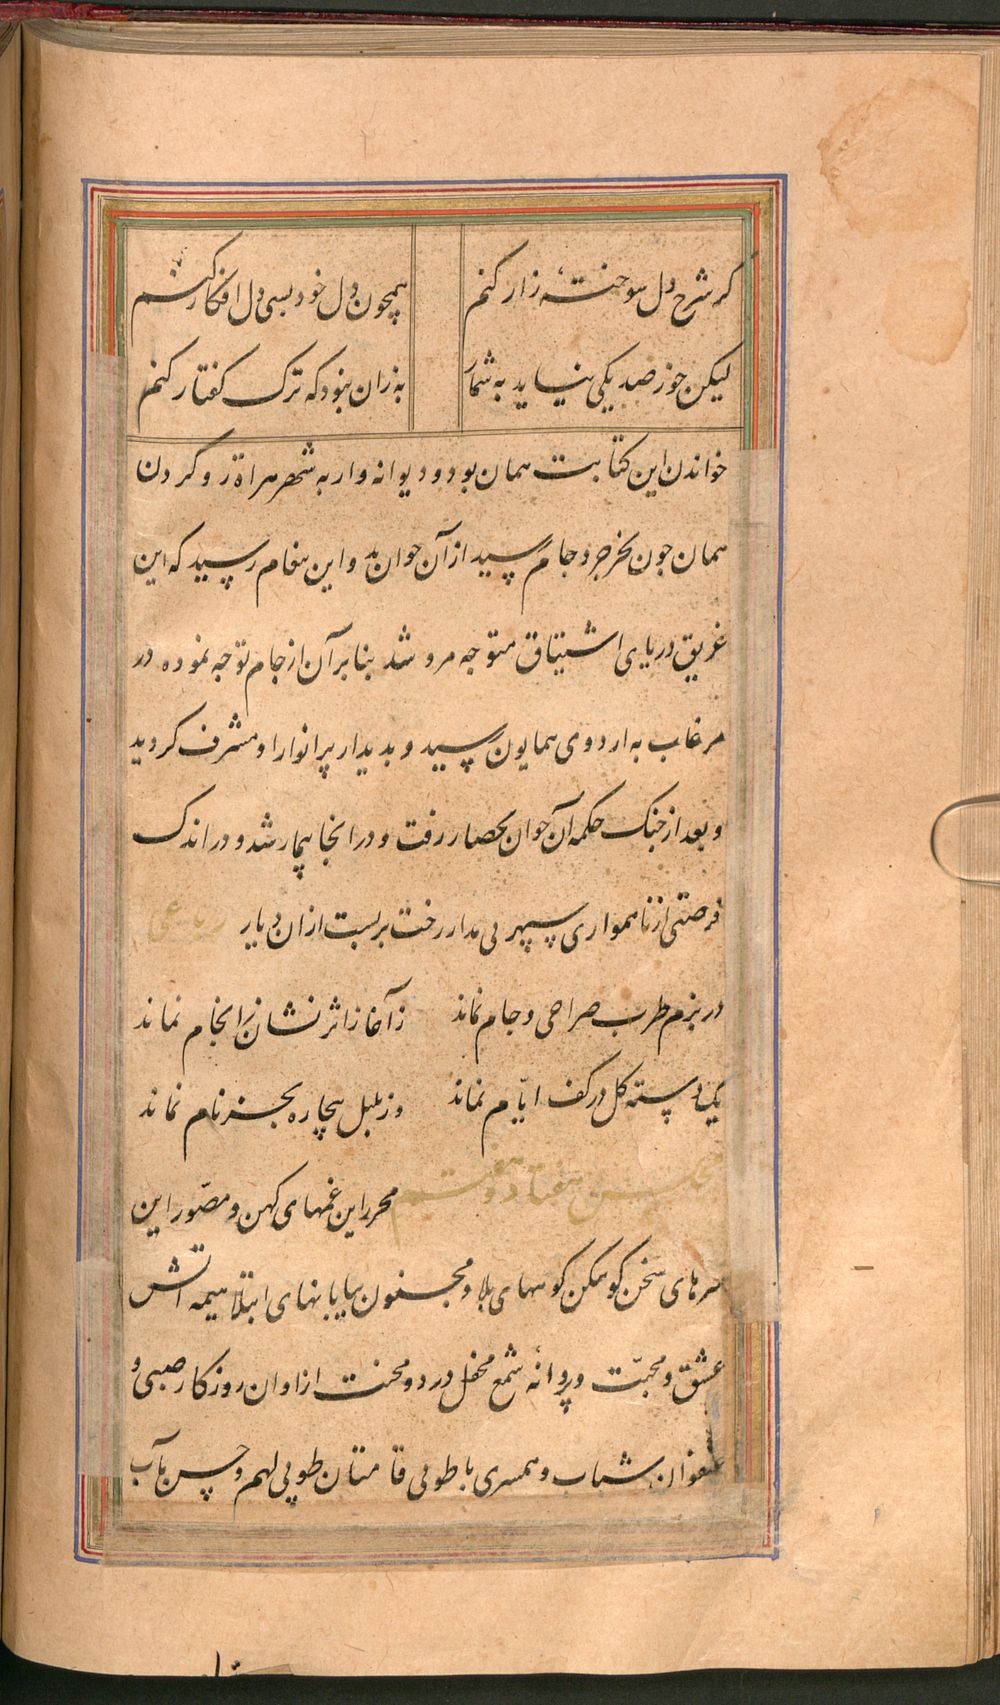 کر شرح دل سوختهٔ زار کنم همچون دل خود بسی دل افکار کنم
لیکن چو ز صد یکی نیاید به شمار به زان نبود که ترک کفتار کنم
خواندن این کتابت همان بود و دیوانه وار به شهر هراة رو کردن
همان چون بخرجرد جام رسید از آن جوان بد و این پیغام رسید که این
غریق دریای اشتیاق متوجه مرو شد بنابر آن از جام توجه نموده در
مرغاب به اردوی همایون رسید و بدیدار پر انوار او مشرف کردید
و بعد از جنک حکمه آن جوان بحصار رفت و در انجا بیمار شد و در اندک
فرصتی از ناهمواری سپهر بی مدار رخت بر بست ازان دیار رباعی
در بزم طرب صراحی و جام نماند ز آغاز اثر نشان ز انجام نماند
یک دسته کل در کف ایّام نماند وز بلبل بیچاره بجز نام نماند
مجلس هفتاد و هفتم محرر این غمهای کهن و مصّور این
سرهای سخن کوهکن کوههای بلا و مجنون بیابانهای ابتلا هیمه آتش
عشق و محبّت و پروانهٔ شمع محفل درد و محنت از اوان روزکار صبی و
عنفوان شباب و همسری با طوبی قامتان طوبی لهم و حسن مآب